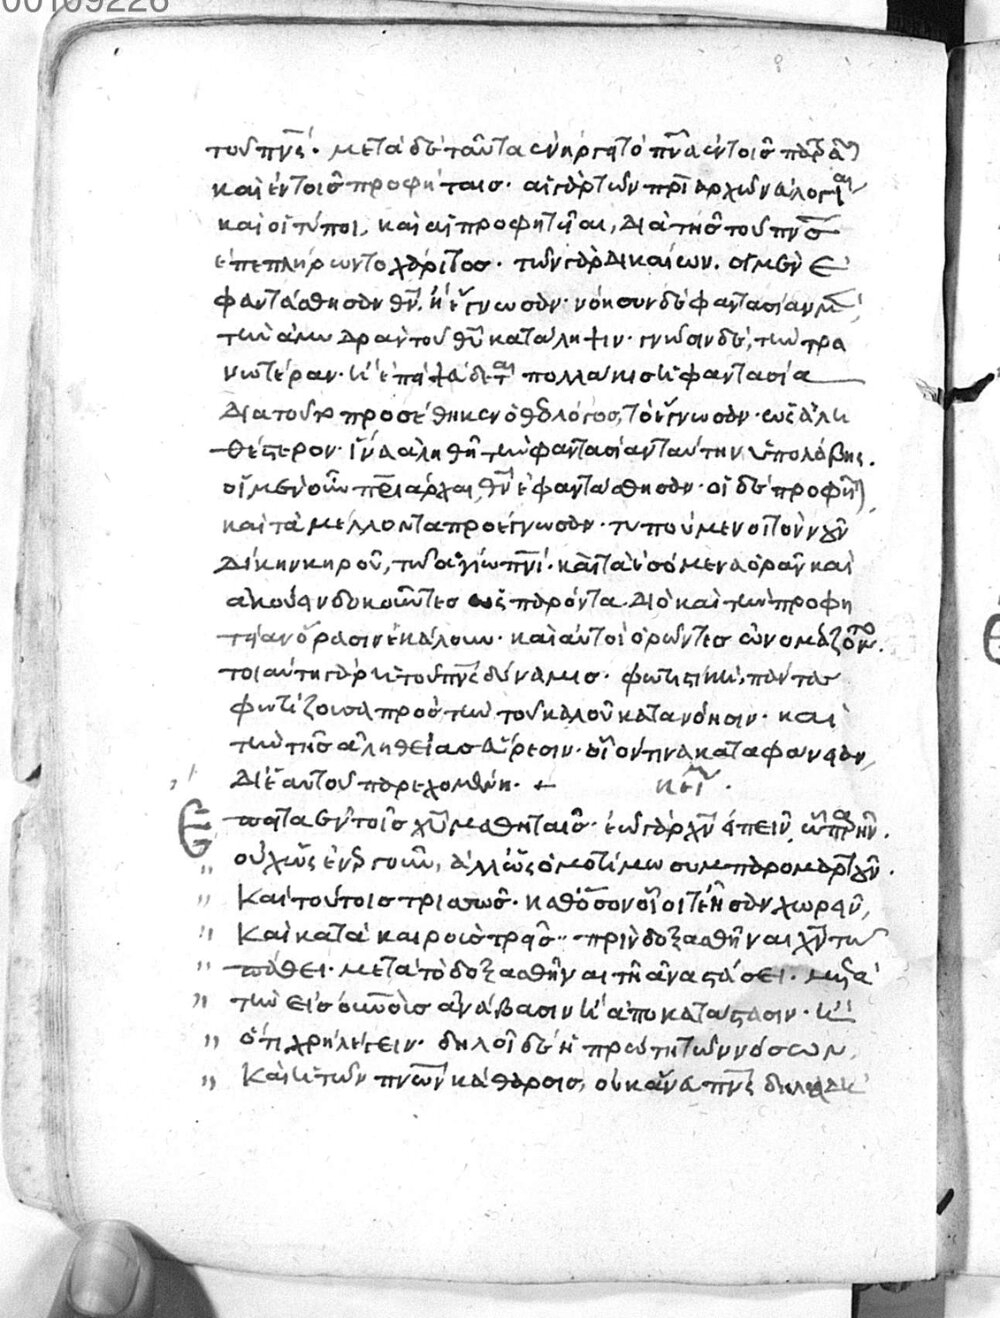 00109226
τοῦ πν̅ς. μετὰ δὲ ταῦτα ἐνήργει τὸ πν̅α ἐν τοῖς πρ̅ά
καὶ ἐν τοῖς προφήταις. αἱ γὰρ τῶν πρι̅αρχῶν ἀλογι
καὶ οἱ τύποι, καὶ αἱ προφητεῖαι, διὰ τῆς τοῦ πν̅ς
ἐπεπλήρωντο χάριτος. τῶν γὰρ δικαίων. οἱ μὲν ἐ
φαντάσθησαν θν̅. ἢ ἔγνωσαν. νόησον δὲ φαντασίαν μὲν,
τὴν ἀμυδρὰν τοῦ θυ̅ κατάληψιν. γνῶσιν δὲ, τὴν τρα
νωτέραν. κ ἐπεὶ ψεύδεται πολλάκις ἡ φαντασία
διὰ τοῦτο προσέθηκεν ὁ θεολόγος, τὸ ἔγνωσαν. ὡς ἀλη
θέστερον. ἵνα ἀληθῆ τὴν φαντασίαν ταύτην ὑπολάβης.
οἱ μὲν οὖν πρ̅ιάρχαι, θν̅ ἐφαντάσθησαν. οἱ δὲ προφῆτ
καὶ τὰ μέλλοντα προέγνωσαν. τυπούμενοι τὸν νοῦν
δίκην κηροῦ, τῶ ἁγίω πν̅ι. καὶ τὰ ἐσόμενα ὁρᾶν καὶ
ἀκούειν δοκοῦντες ὡς παρόντα. διὸ καὶ τὴν προφη
τείαν ὅρασιν ἐκάλουν. καὶ αὐτοὶ ὁρῶντες ὠνομάζοντο.
τοιαύτη γὰρ ἡ τοῦ πν̅ς δύναμις. φωτιστικὴ, πάντας
φωτίζουσα πρὸς τὴν τοῦ καλοῦ κατανόησιν. καὶ
τὴν τῆς ἀληθείας εὕρεσιν. οἱονεὶ
δι ἑαυτοῦ παρεχομένη.
κεί .
Ἔπειτα ἐν τοῖς χυ̅ μαθηταῖς. ἐῶ γὰρ χν̅ εἰπεῖν, ὧ παρῆν.
οὐχ ὡς ἐνεργοῦν, ἀλλ ὡς ὁμοτίμω συμπαρομαρτοῦν.
Καὶ τούτοις τρισσῶς. καθόσον οἷοι τε ἦσαν χωρεῖν,
Καὶ κατὰ καιροὺς τρεῖς. πρὶν δοξασθῆναι χν̅ τῶ
πάθει. μετὰ τὸ δοξασθῆναι τῆ ἀναστάσει. μετὰ
τὴν εἰς οὐνοὺς ἀνάβασιν κ ἀποκατάστασιν. κ
ὅτι χρὴ λέγειν. δηλοῖ δὲ ἡ πρώτη τῶν νόσων,
Καὶ ἡ τῶν πνω̅ν κάθαρσις, οὐκ ἄνευ πν̅ς δηλαδὴ